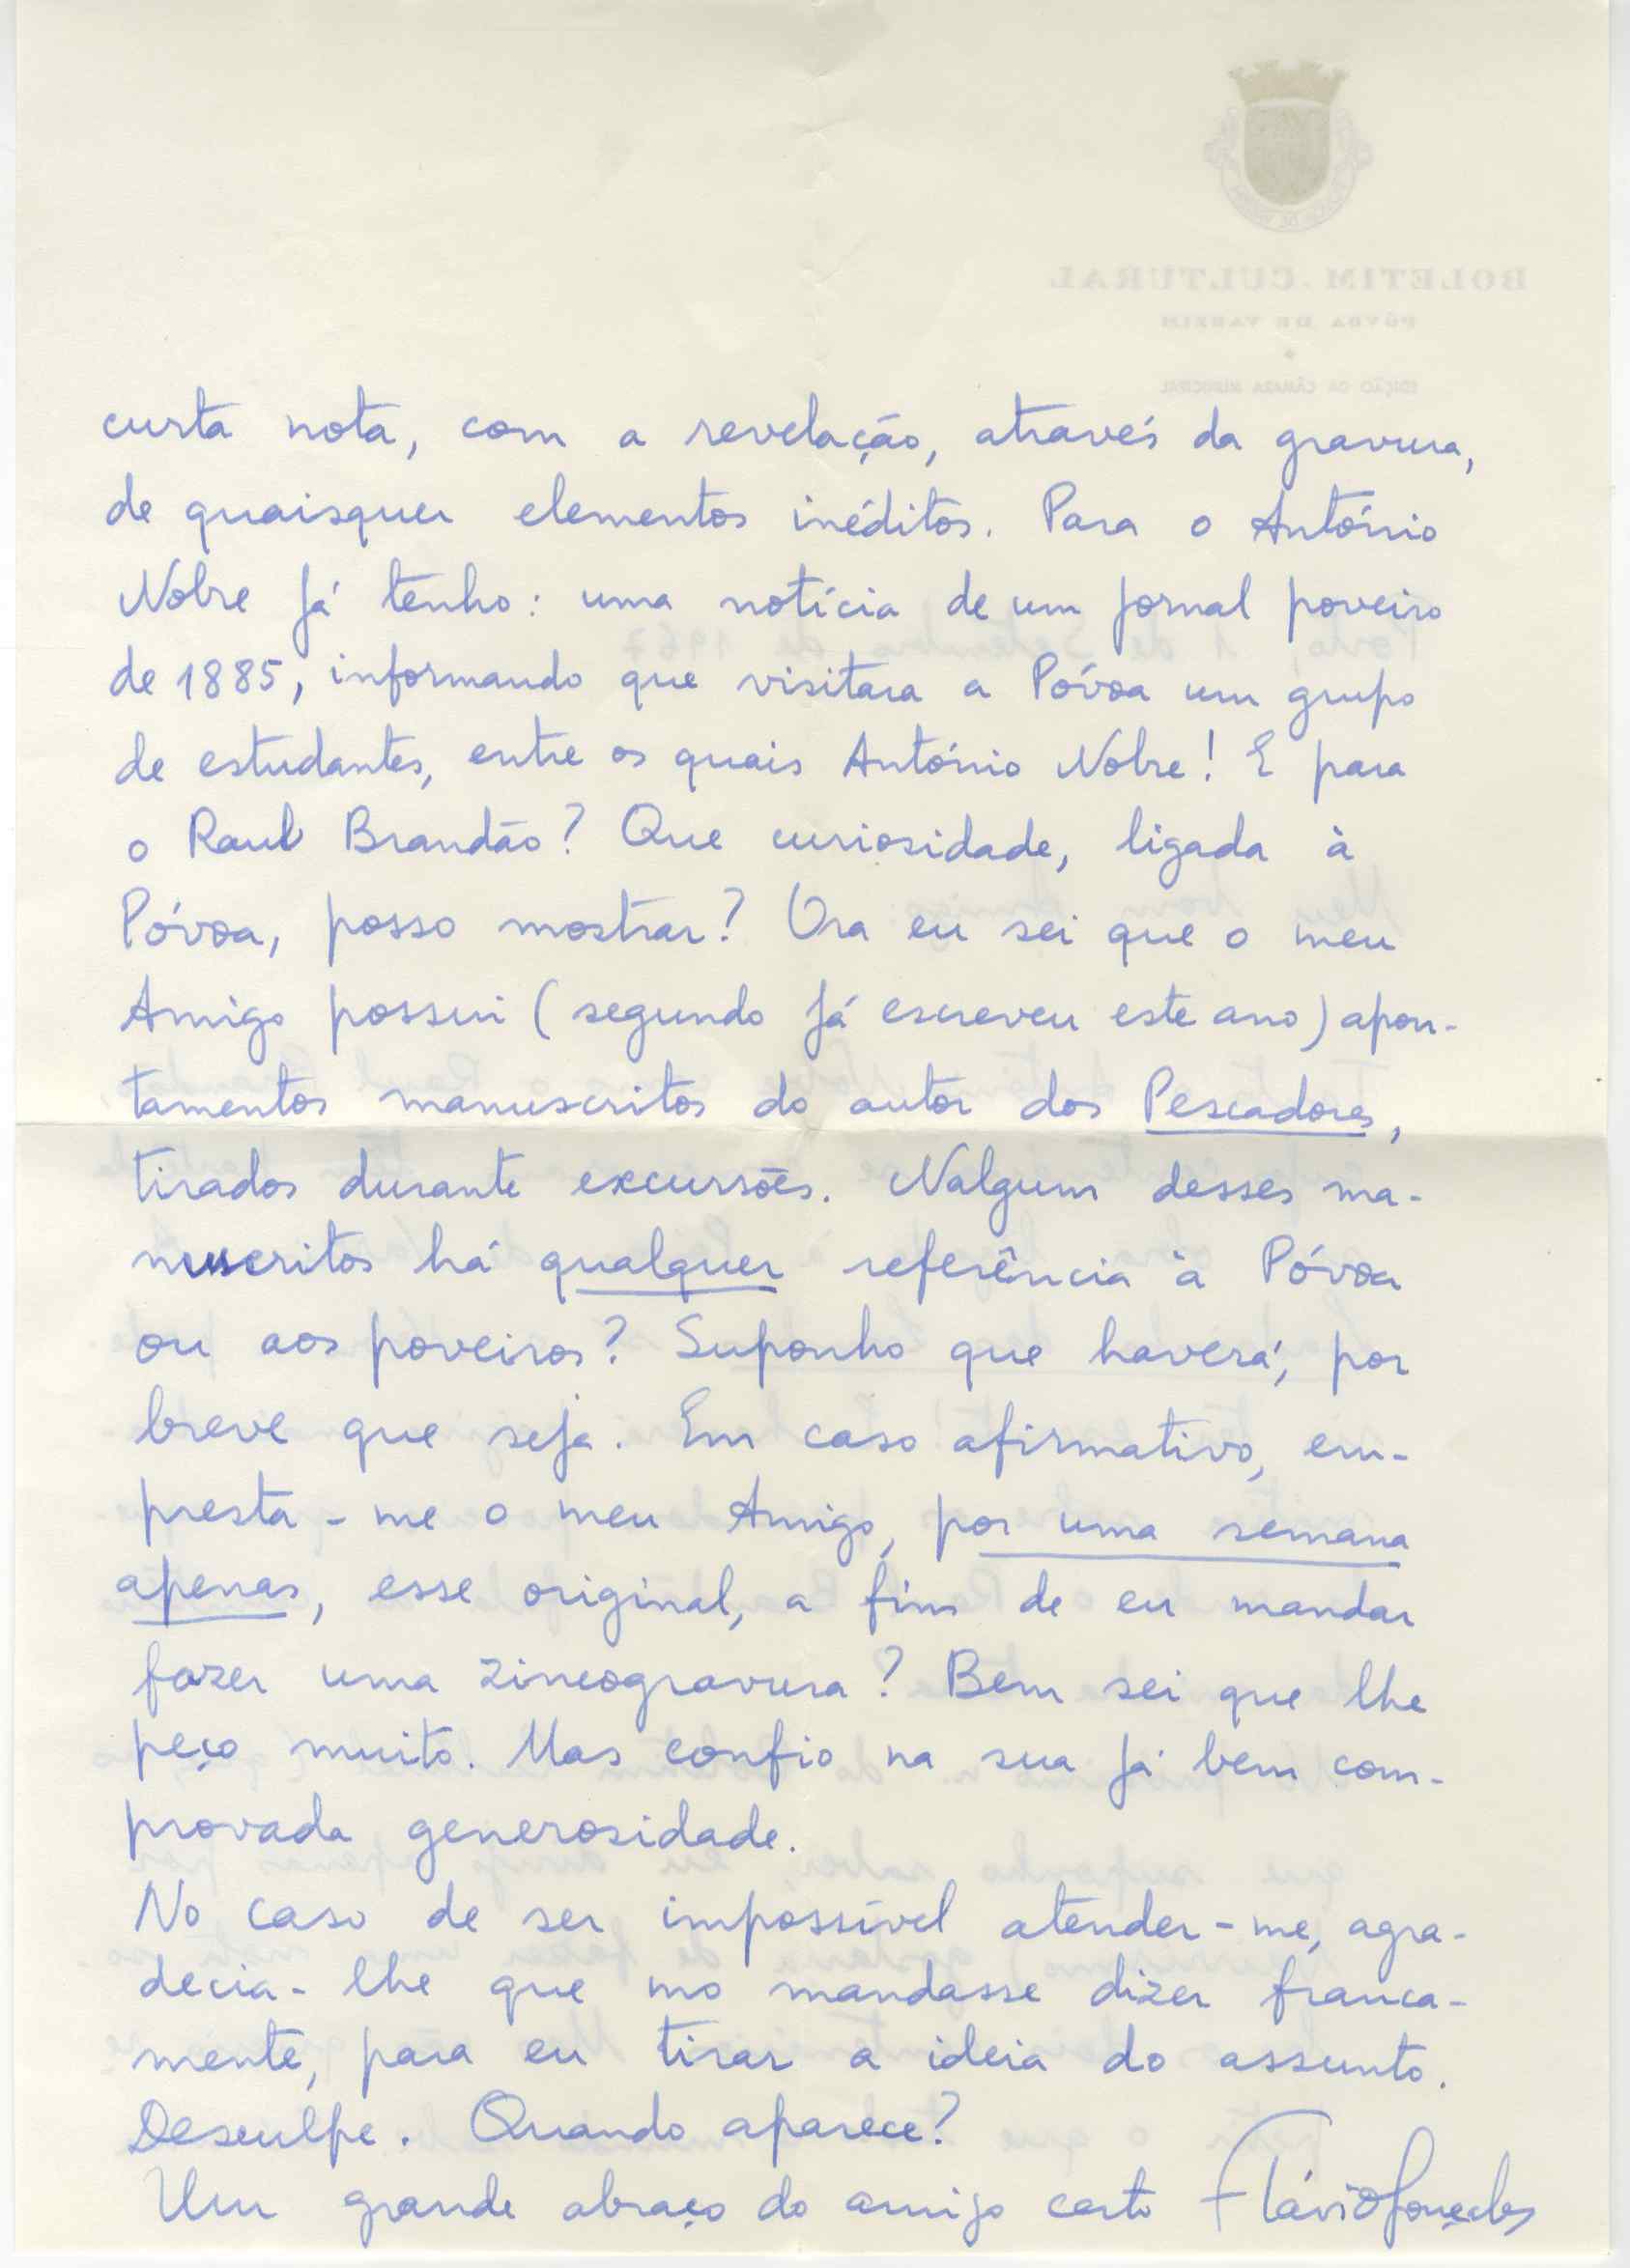 BOLETIM CULTURAL
PÓVOA DE VARZIM
EDIÇÃO DA CÂMARA MUNICIPAL
curta nota, com a revelação, através da gravura,
de quaisquer elementos inéditos. Para o António
Nobre já tenho: uma notícia de um jornal poveiro
de 1885, informando que visitara a Póvoa um grupo
de estudantes, entre os quais António Nobre! E para
o Raul Brandão? Que curiosidade, ligada à
Póvoa, posso mostrar? Ora eu sei que o meu
Amigo possui (segundo já escreveu este ano) apon-
tamentos manuscritos do autor dos Pescadores,
tirados durante excursões. Nalgum desses ma-
nuscritos há qualquer referência à Póvoa
ou aos poveiros? Suponho que haverá, por
breve que seja. Em caso afirmativo, em-
presta-me o meu Amigo, por uma semana
apenas, esse original, a fim de eu mandar
fazer uma zincogravura? Bem sei que lhe
peço muito. Mas confio na sua já bem com-
provada generosidade.
No caso de ser impossível atender-me, agra-
decia-lhe que mo mandasse dizer franca-
mente, para eu tirar a ideia do assunto.
Desculpe. Quando aparece?
Um grande abraço do amigo certo Flávio Gonçalves